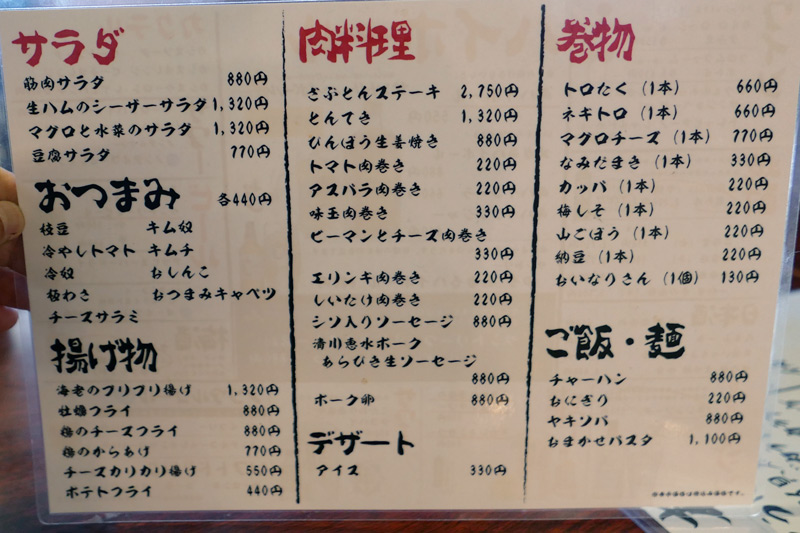 サラダ
筋肉サラダ 880円
生ハムのシーザーサラダ 1,320円
マグロと水菜のサラダ 1,320円
豆腐サラダ 770円
おつまみ 各440円
枝豆 キム奴
冷やしトマト キムチ
冷奴 おしんこ
板わさ おつまみキャベツ
チーズサラミ
揚げ物
海老のプリプリ揚げ 1,320円
牡蠣フライ 880円
鶏のチーズフライ 880円
鶏のからあげ 770円
チーズカリカリ揚げ 550円
ポテトフライ 440円
肉料理
ざぶとんステーキ 2,750円
とんてき 1,320円
びんぼう生姜焼き 880円
トマト肉巻き 220円
アスパラ肉巻き 220円
味玉肉巻き 330円
ピーマンとチーズ肉巻き
330円
エリンギ肉巻き 220円
しいたけ肉巻き 220円
シソ入りソーセージ 880円
清川恵水ポーク
あらびき生ソーセージ
880円
ポーク卵 880円
デザート
アイス 330円
巻物
トロたく（1本） 660円
ネギトロ（1本） 660円
マグロチーズ（1本） 770円
なみだまき（1本） 330円
カッパ（1本） 220円
梅しそ（1本） 220円
山ごぼう（1本） 220円
納豆（1本） 220円
おいなりさん（1個） 130円
ご飯・麺
チャーハン 880円
おにぎり 220円
ヤキソバ 880円
おまかせパスタ 1,100円